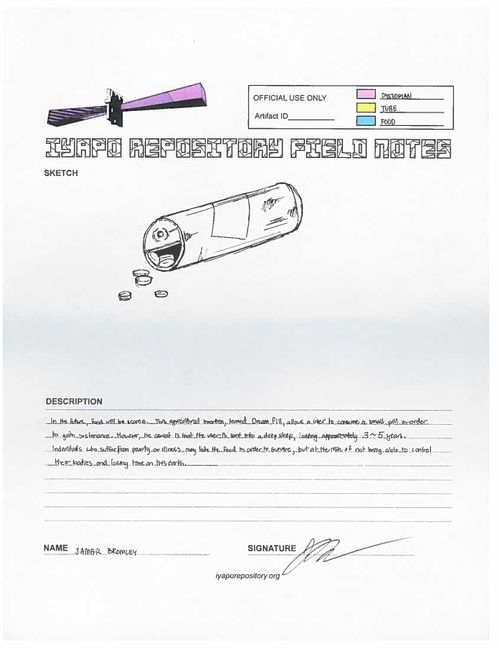 OFFICIAL USE ONLY
Artifact ID
DYSTOPIAN
TUBE
FOOD
IYAPO REPOSITORY FIELD NOTES
SKETCH
DESCRIPTION
In the future, food will be scarce. This agricultural invention, termed Dream Pill, allows a user to consume a small pill in order
to gain sustenance. However, the caveat is that the user is sent into a deep sleep, lasting approximately 3~5 years.
Individuals who suffer from poverty or illness may take the food in order to survive, but at the risk of not being able to control
their bodies and losing time on this earth.
NAME JAMAR BROMLEY
SIGNATURE
iyaporepository.org